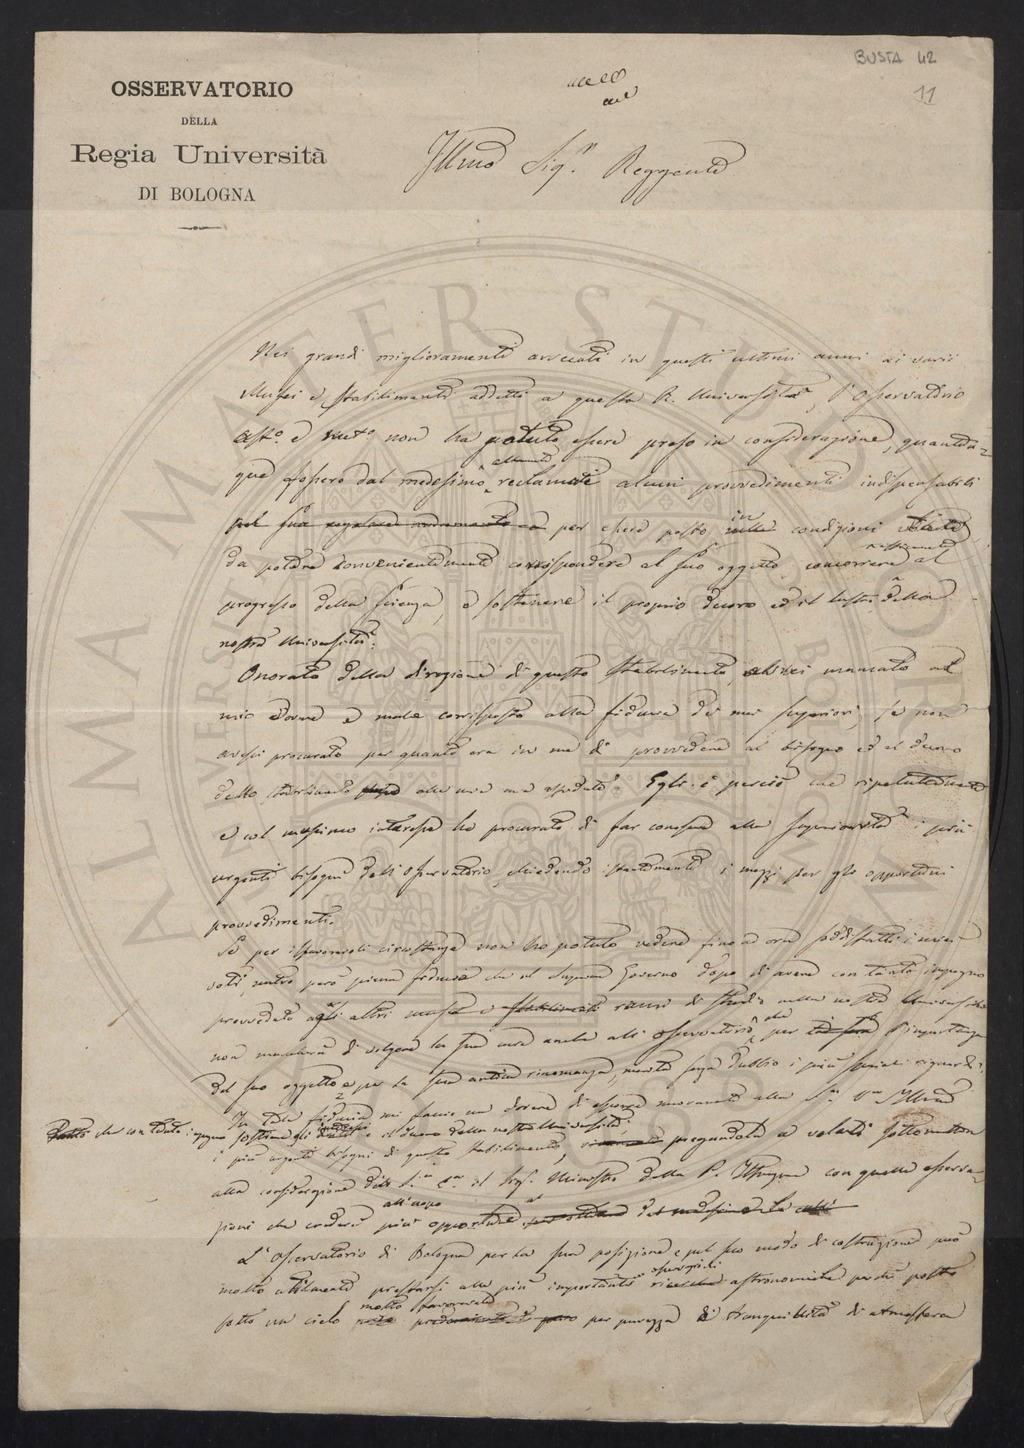 BUSTA 42
11
OSSERVATORIO
DELLA
Regia Università
DI BOLOGNA
Illmo Sigr. Reggente
Nei grandi miglioramenti arrecati in questi ultimi anni ai varii
Musei e Stabilimenti addetti a questa R. Università, l'Osservatorio
Astro. e meto. non ha potuto essere preso in considerazione, quantun=
que fossero dal medesimo reclamati alcuni provvedimenti indispensabili
pel suo regolare andamento per essere posto in condizioni
da potere convenientemente corrispondere al suo oggetto, concorrere al
progresso della scienza, e sostenere il proprio decoro ed il lustro della
nostra Università.
Onorato della direzione di questo Stabilimento, mancato al
mio dovere e male corrisposto alla fiducia dei miei superiori, se non
avessi procurato per quanto era in me di provvedere al bisogno ed al decoro
dello stabilimento alla mia cura affidato. Egli è perciò che ripetutamente
e col massimo interesse ho procurato di far conoscere alla Superiorità i più
urgenti bisogni dell'Osservatorio, chiedendo istantemente i mezzi per gli opportuni
provvedimenti.
Se per isfavorevoli circostanze non ho potuto vedere fino a ora soddisfatti i miei
voti, nutro però piena fiducia che il Superior Governo dopo di avere con tanto impegno
provveduto agli altri musei e stabilimenti rami di studio della nostra Università
non mancherà di volgere la sua cura anche all'Osservatorio che per l'importanza
del suo oggetto e per la sua antica rinomanza, merita senza dubbio i più speciali riguardi.
In tale fiducia mi faccio un dovere di esporre nuovamente alla S. V. Illma
che con tanto impegno sostiene gli interessi e il decoro della nostra Università,
i più urgenti bisogni di questo stabilimento, pregandola a volerli sottomettere
alla considerazione di S. E. il Sigr. Ministro della P. Istruzione con quelle osserva=
zioni che crederà più opportune all'uopo
L'Osservatorio di Bologna per la sua posizione e pel suo modo di costruzione può
molto utilmente prestarsi alle più importanti ricerche astronomiche perchè posto
sotto un cielo molto favorevole per purezza e tranquillità di atmosfera